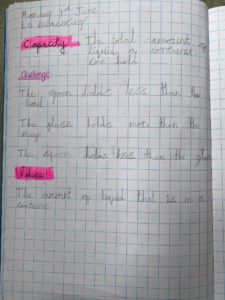 Monday 1st June
LO measuring
Capacity The total amount of
liquid a container
can hold
Challenge
The spoon holds less than the
The glass holds more than the
mug
The spoon holds less than the glass
Volume
The amount of liquid that is in a
container